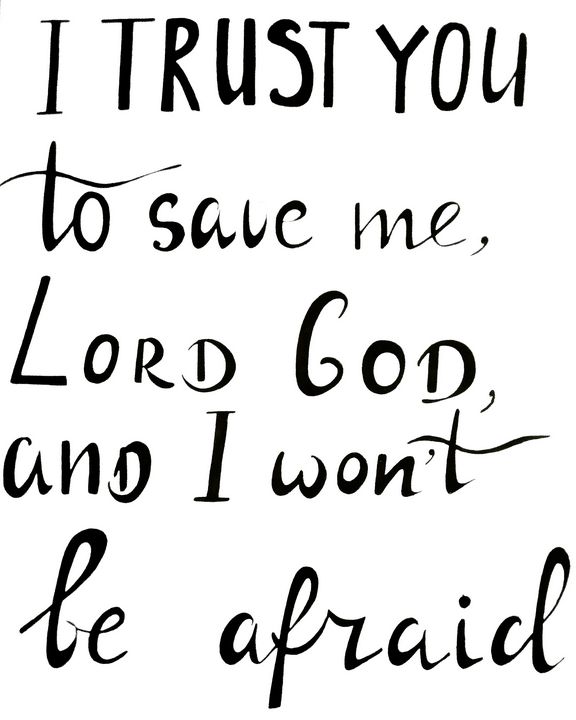 I TRUST YOU
to save me,
LORD GOD,
and I won't
be afraid